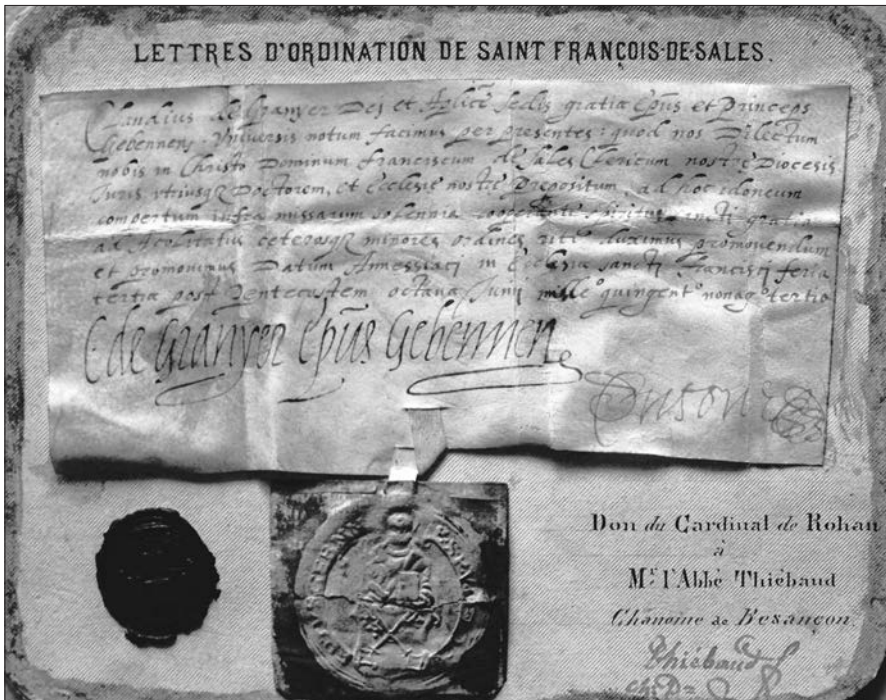 LETTRES D'ORDINATION DE SAINT FRANÇOIS-DE-SALES.
Claudius de Granyer Dei et Ap̃licẽ sedis gratia Ep̃us et Princeps
Gebennens. Universis notum facimus per presentes; quod nos Dilectum
nobis in Christo Dominum Franciscum de Sales Clericum nostrẽ Diocesis
Juris vtriusqꝫ Doctorem, et Ecclesie nostrẽ Prepositum, ad hoc idoneum
compertum infra missarum solennia cooperante spiritus sancti gratia
ad Acolitatus ceterosqꝫ minores ordines ritè duximus promovendum
et promovimus Datum Annessiaci in Ecclesia sancti Francisci feria
tertia post Pentecostem octava Junii mille.º quingentº nonagº tertio
C de Granyer Ep̃us Gebennen
Don du Cardinal de Rohan
à
Mr. l'Abbé Thiébaud
Chanoine de Besançon.
Thiébaud